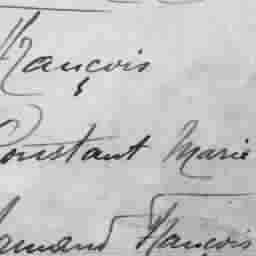 François
Constant Marie
François